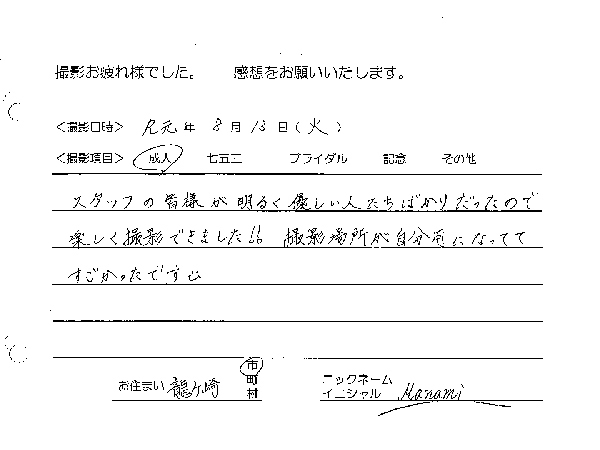 撮影お疲れ様でした。 感想をお願いいたします。
<撮影日時> R元年 8月 13日(火)
<撮影項目> 成人 七五三 ブライダル 記念 その他
スタッフの皆様が明るく優しい人たちばかりだったので
楽しく撮影できました!! 撮影場所が自分専になってて
すごかったです
お住まい 龍ケ崎 市 町 村
ニックネーム
イニシャル Manami